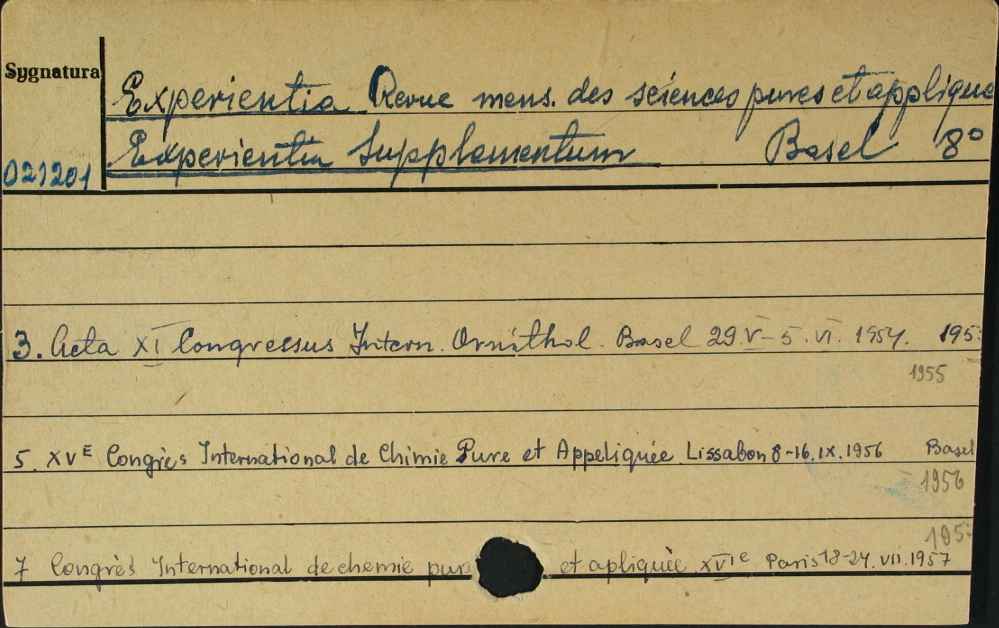 Sygnatura
Experientia Revue mens. des sciences pures et applique
Experientia Supplementum Basel 8°
021201
3. Acta XI Congressus Intern. Ornithol. Basel 29.V-5.VI.1954. 195
1955
5. XVE Congres International de Chimie Pure et Appeliquée Lissabon 8-16.IX.1956 Basel
1956
195
7 Congrès International de chemie pur et apliquée XVIe Paris 18-24.VII.1957